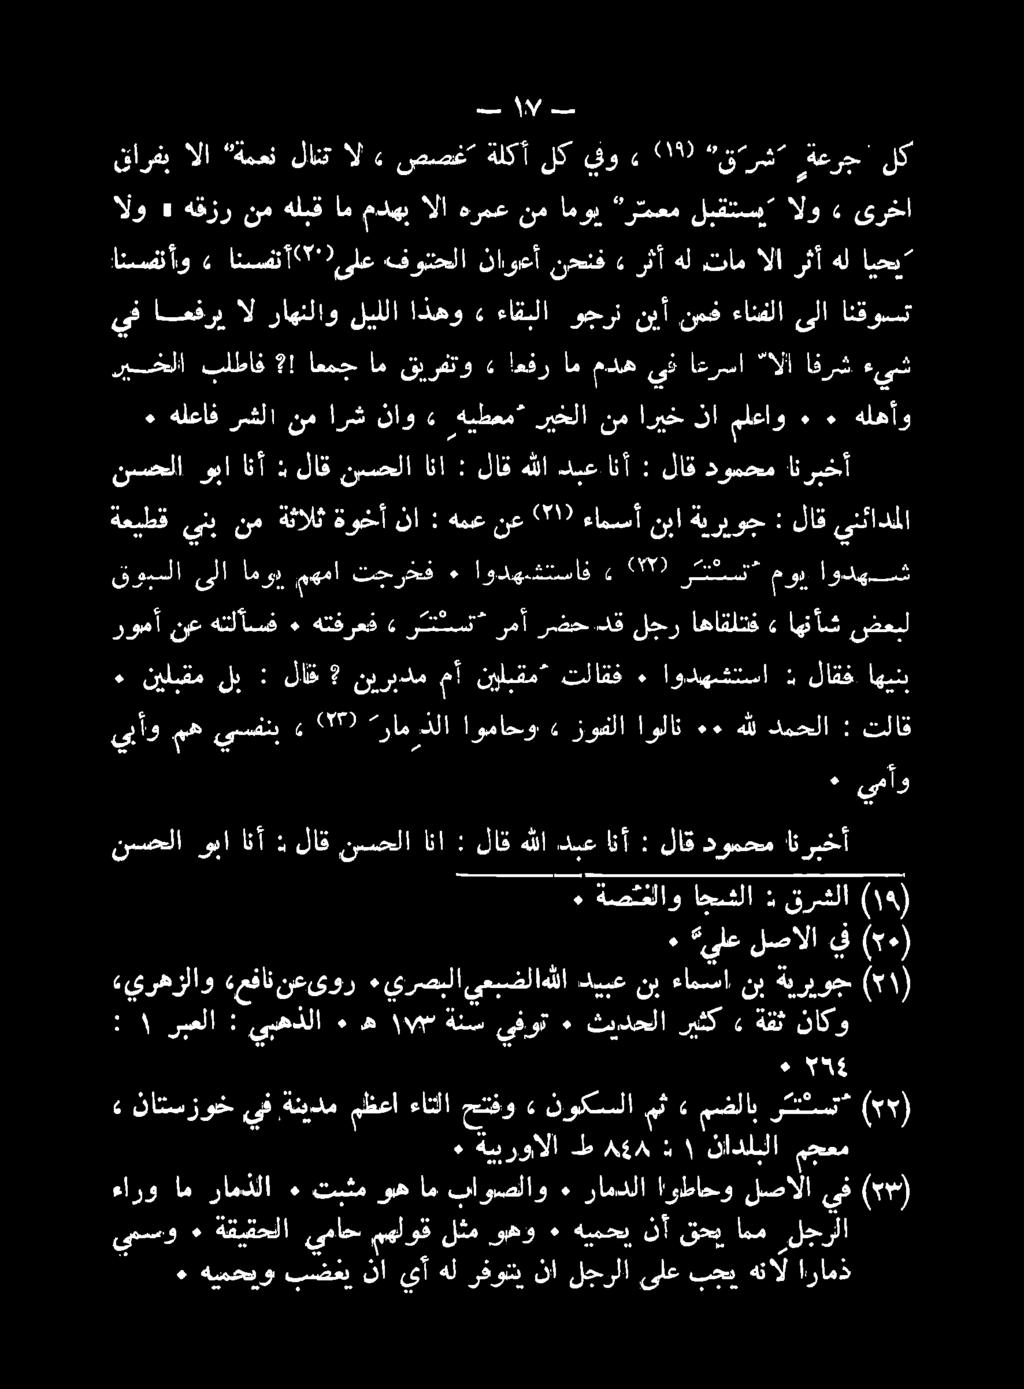 — ١٧ —
كل جرعةٍ شَرَقٌ (١٩) ، وفي كل أكلة غَصص ، لا تنال نعمةٌ الا بفراق
اخرى ، ولا يَستقبل معمّرٌ يوما من عمره الا بهدم ما قبله من رزقه ٠ ولا
يَحيا له أثر الا مات له أثر ، فنحن أعوان الحتوف على(٢٠) أنفسنا ، وأنفسنا
تسوقنا الى الفناء فمن أين نرجو البقاء ، وهذا الليل والنهار لا يرفعـا في
شيء شرفا الاّ اسرعا في هدم ما رفعا ، وتفريق ما جمعا !؟ فاطلب الخـير
وأهله ٠ ٠ واعلم ان خيرا من الخير مُعطيهِ ، وان شرا من الشر فاعله ٠
أخبرنا محمود قال : أنا عبد الله قال : انا الحسن قال : أنا ابو الحسن
المدائني قال : جويرية ابن أسماء (٢١) عن عمه : ان أخوة ثلاثة من بني قطيعة
شـهدوا يوم تُسْتَر (٢٢) ، فاستشهدوا ٠ فخرجت امهم يوما الى السوق
لبعض شأنها ، فتلقاها رجل قد حضر أمر تُسْتَر ، فعرفته ٠ فسألته عن أمور
بنيها فقال : استشهدوا ٠ فقالت مُقبلين أم مدبرين ? قال : بل مقبلين ٠
قالت : الحمد لله ٠٠ نالوا الفوز ، وحاموا الذِمارَ (٢٣) ، بنفسي هم وأبي
وأمي ٠
أخبرنا محمود قال : أنا عبد الله قال : انا الحسن قال : أنا ابو الحسن
(١٩) الشرق : الشجا والغصّة ٠
(٢٠) في الاصل عليّ ٠
(٢١) جويرية بن اسماء بن عبيد الله الضبعي البصري ٠ روى عن نافع، والزهري،
وكان ثقة ، كثير الحديث ٠ توفي سنة ١٧٣ هـ ٠ الذهبي : العبر ١ :
٢٦٤ ٠
(٢٢) تُسْتَر بالضم ، ثم السكون ، وفتح التاء اعظم مدينة في خوزستان ،
معجم البلدان ١ : ٨٤٨ ط الاوربية ٠
(٢٣) في الاصل وحاطوا الدمار ٠ والصواب ما هو مثبت ٠ الذمار ما وراء
الرجلِ مما يحق أن يحميه ٠ وهو مثل قولهم حامي الحقيقة ٠ وسمي
ذمارا لأنه يجب على الرجل ان يتوفر له أي ان يغضب ويحميه ٠